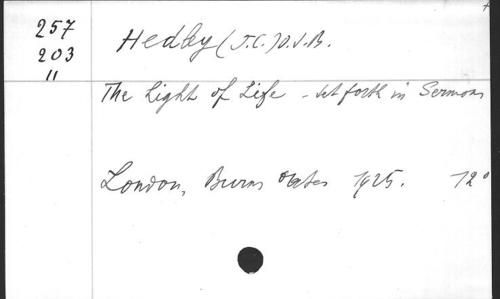 257
203
11
Hedley (J.C.) O.S.B.
The Light of Life - set forth in Sermons
London, Burns Oates 1925. 12°